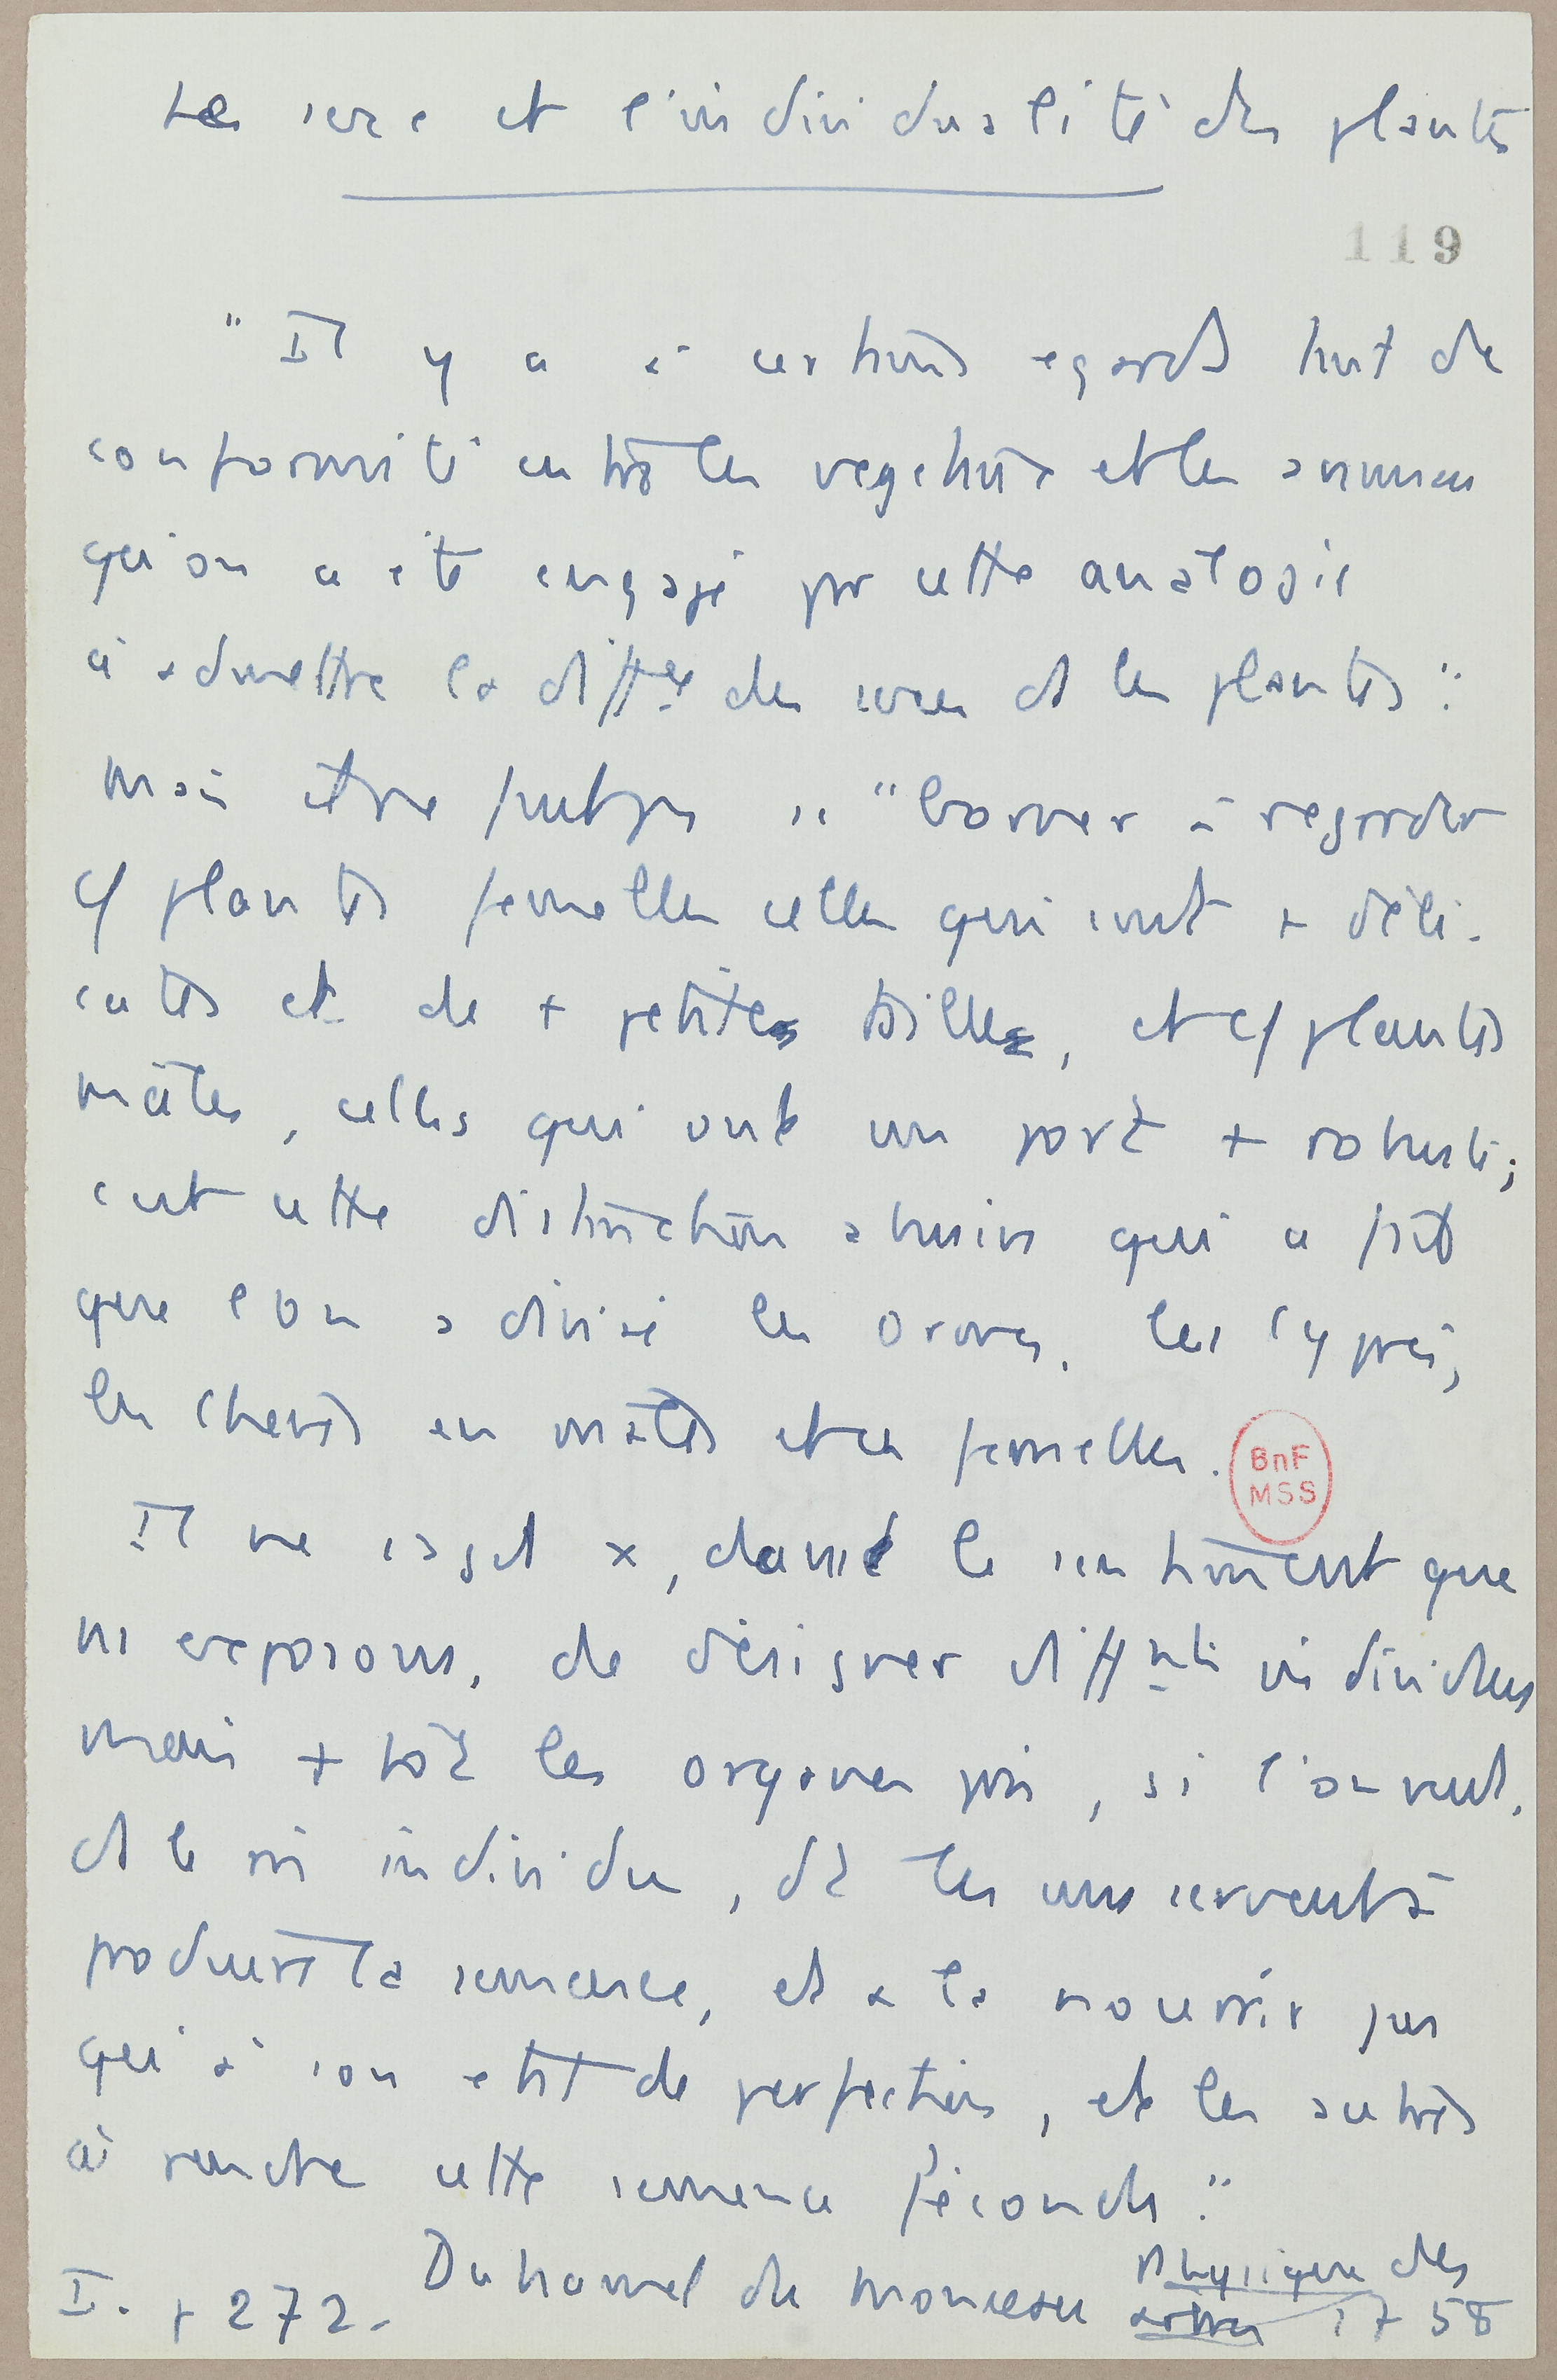 Le sexe et l'individualité des plantes
119
"Il y a à certains egards tant de
conformité entre les vegetaux et les animaux
qu'on a été engagé par cette analogie
à admettre la diffce des sexes ds les plantes":
mais etre fut-ce "borner à regarder
c/ plantes femelles celles qui sont + déli-
cates et de + petite taille, et c/ plantes
mâles, celles qui ont un port + robuste;
c'est cette distinction abusive qui a fait
que l'on a divisé les Ormes, les Cyprès,
les Chenes en mâles et en femelles.
BnF
MSS
Il ne s'agit x, dans le sentiment que
ns exposons, de désigner diffnts individus
mais + tôt les organes pris, si l'on veut,
ds le mm individu, dt les uns servent à
produire la semence, et a la nourrir jus
qu'à son etat de perfection, et les autres
à rendre cette semence féconde."
Duhamel de Monceau Physique des
I. p 272. arbres 1758